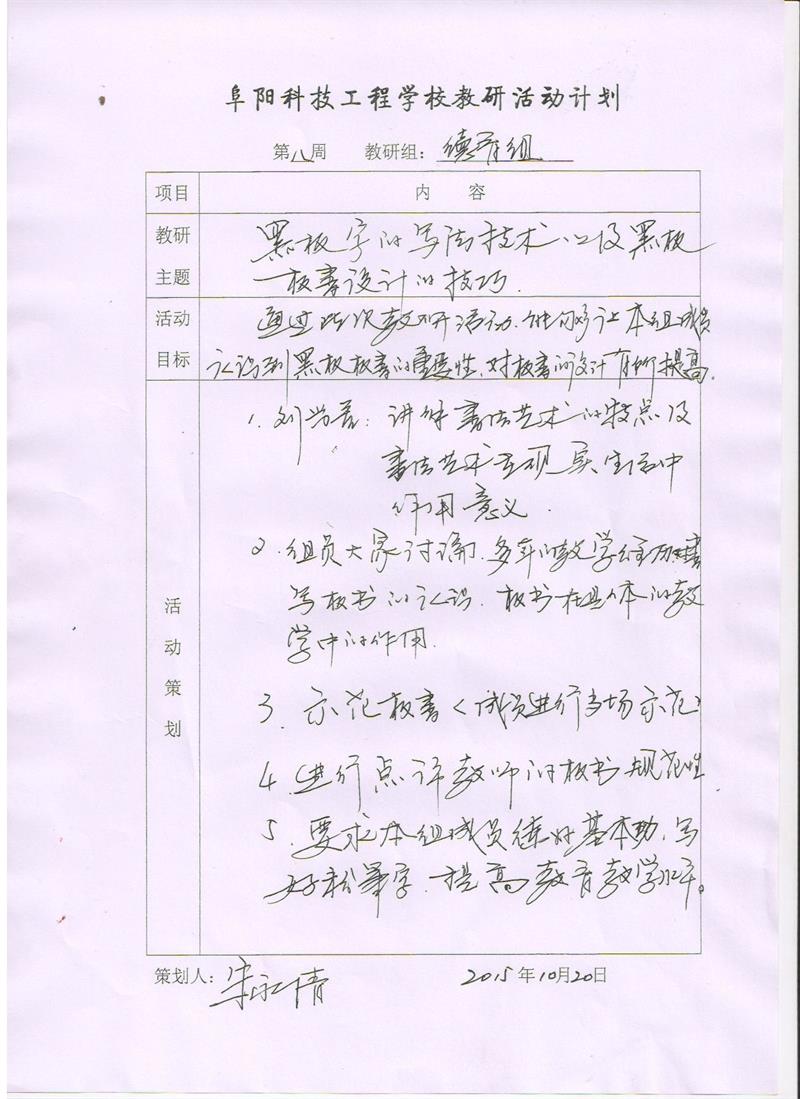 阜阳科技工程学校教研活动计划
第八周 教研组：德育组
项目 内 容
教研 黑板字的写法技术以及黑板
主题 板书设计的技巧.
活动 通过此次教研活动.能够让本组成员
目标 认识到黑板板书的重要性,对板书的设计有所提高.
活动策划
1. 刘: 讲解书法艺术的特点及
书法艺术在现实生活中
作用意义.
2. 组员大家讨论,多年的教学经历书
写板书的认识.板书在本的教
学中的作用.
3. 示范板书(成员进行当场示范)
4. 进行点评教师的板书规范性
5. 要求本组成员练好基本功,写
好粉笔字.提高教育教学水平。
策划人：宋 2015年10月20日